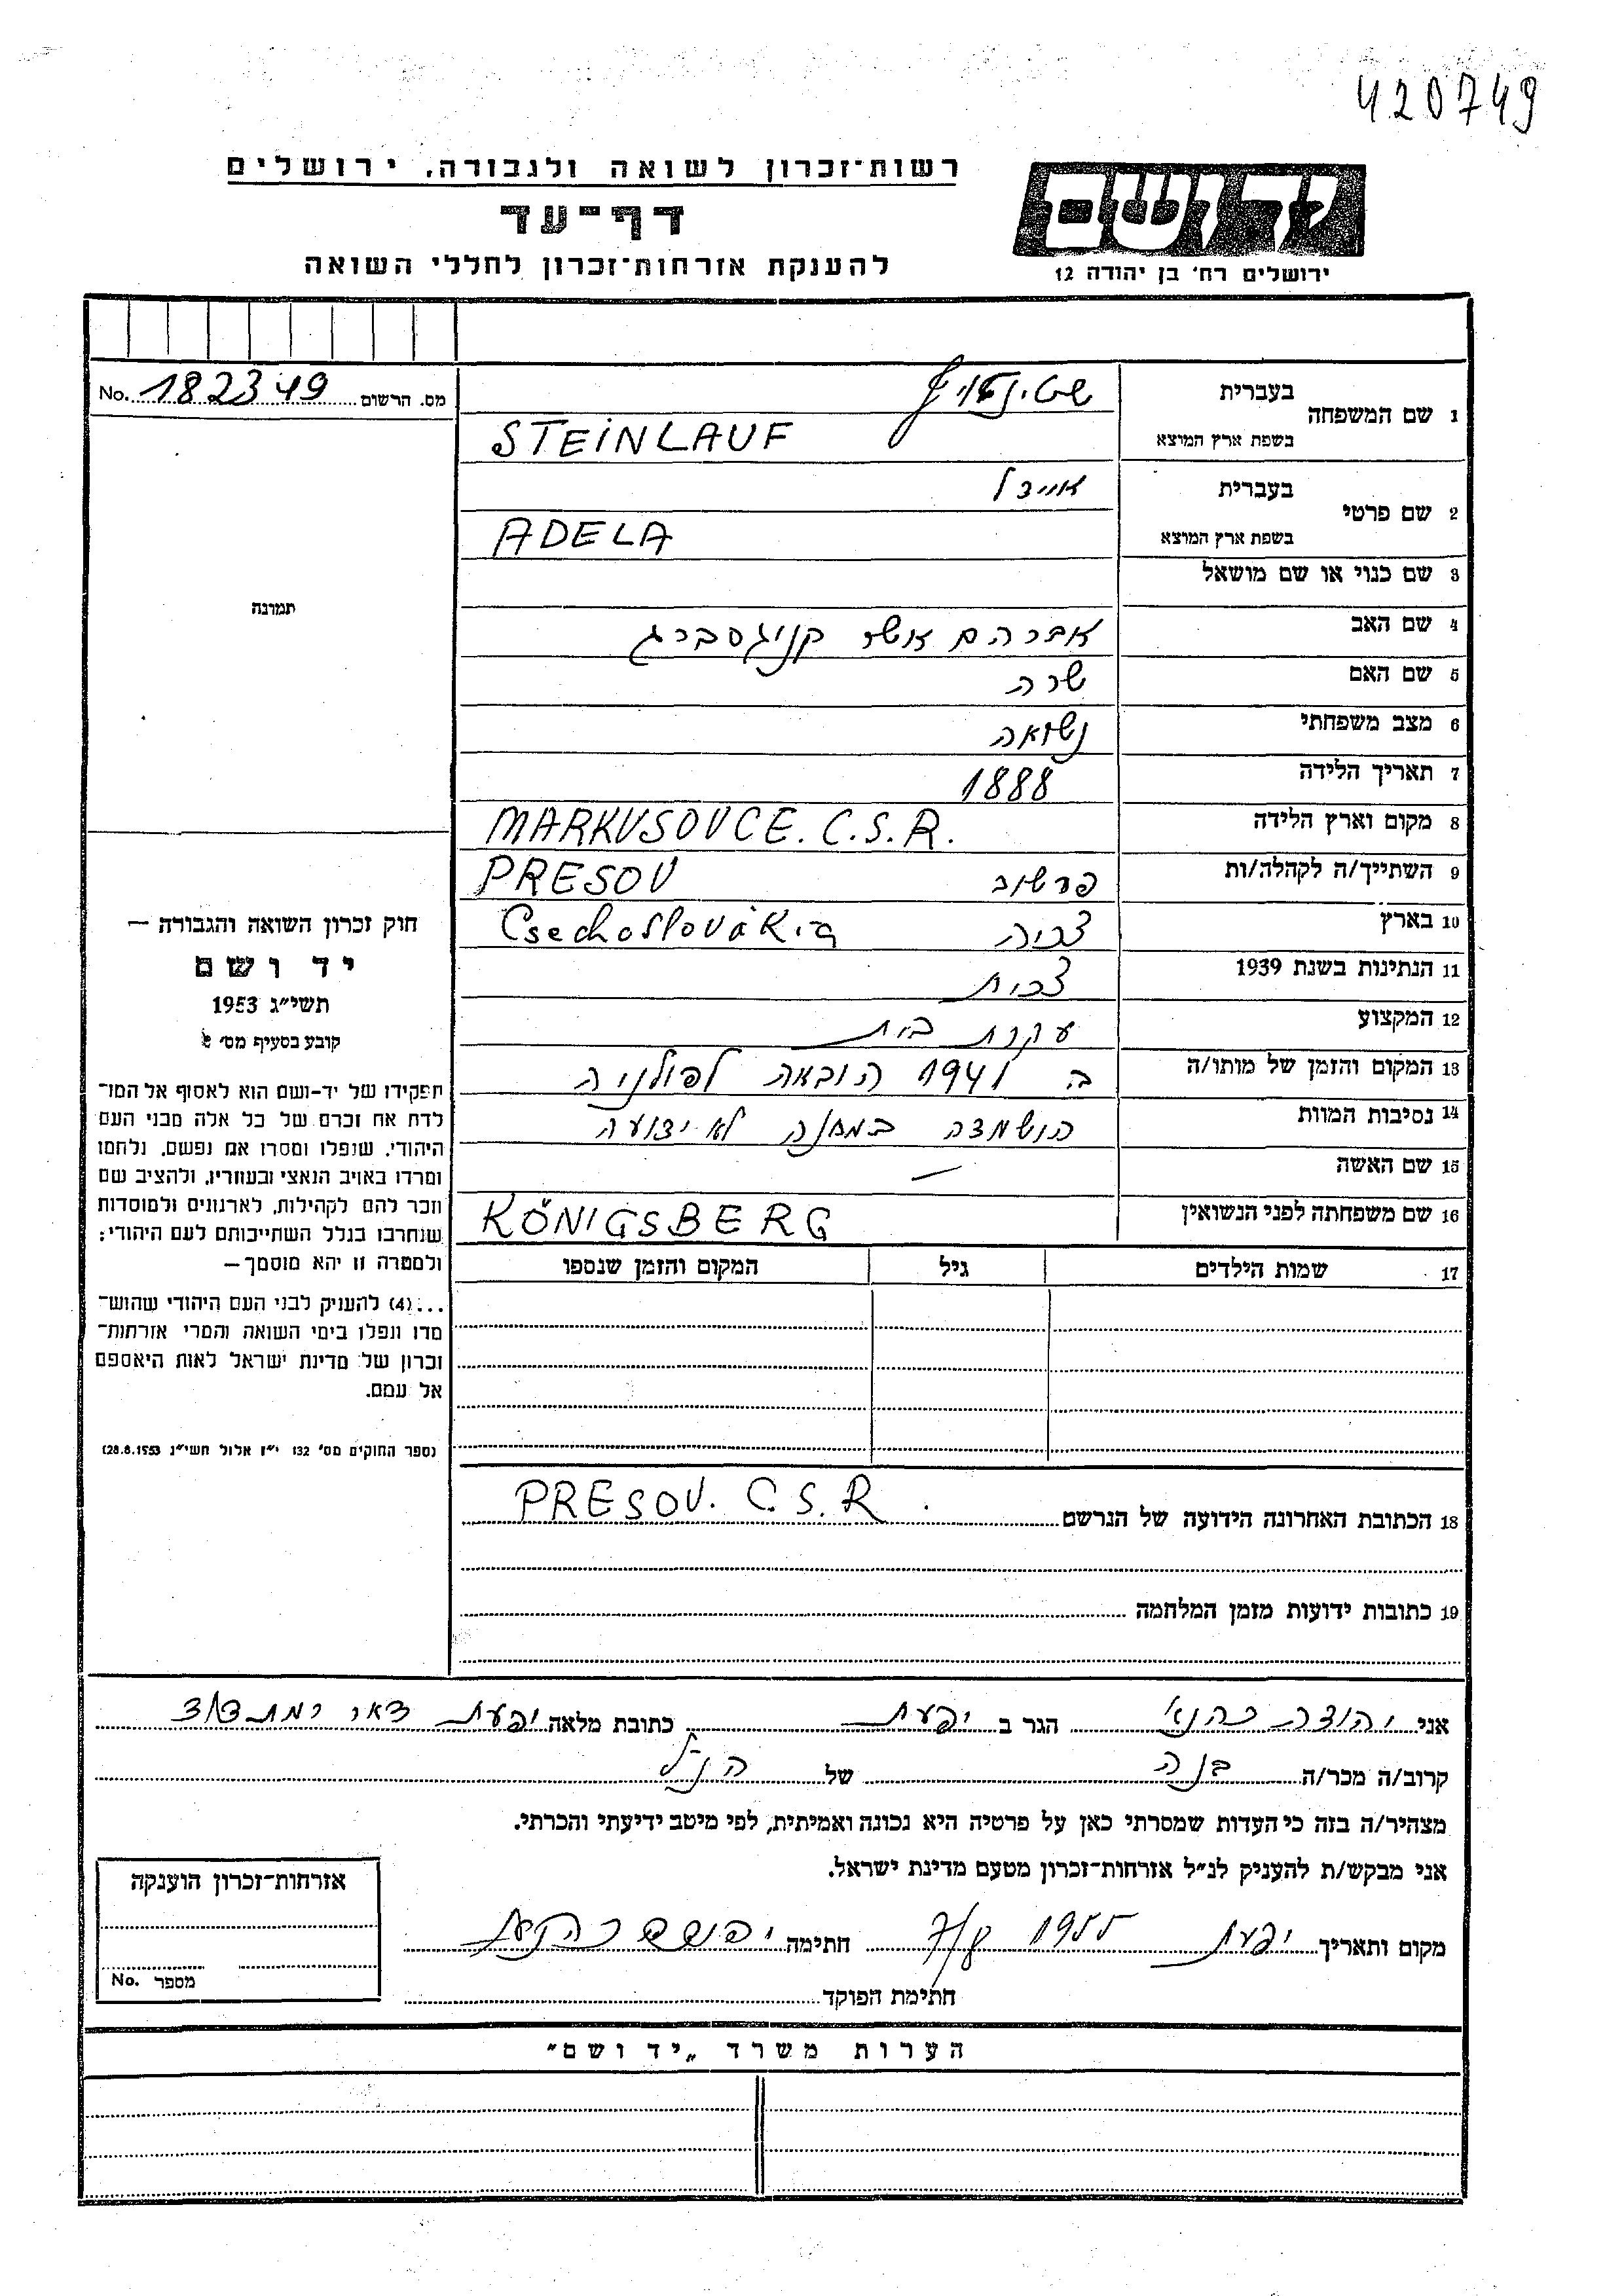 420749
רשות־זכרון לשואה ולגבורה, ירושלים
יד ושם
דף־עד
להענקת אזרחות־זכרון לחללי השואה
ירושלים רח' בן יהודה 12
מס. הרשום 182349 No.
1 שם המשפחה בעברית
בשפת ארץ המוצא STEINLAUF
2 שם פרטי בעברית
בשפת ארץ המוצא ADELA
3 שם כנוי או שם מושאל
תמונה
4 שם האב אברהם אשר קניגסברג
5 שם האם שרה
6 מצב משפחתי נשואה
7 תאריך הלידה 1888
8 מקום וארץ הלידה MARKUSOVCE. C.S.R.
9 השתייך/ה לקהלה/ות פרשוב PRESOV
10 בארץ צכיה Csechoslovákia
11 הנתינות בשנת 1939 צכית
12 המקצוע עקרת בית
13 המקום והזמן של מותו/ה ב 1941 הובאה לפולניה
14 נסיבות המוות הושמדה במחנה לא ידועה
15 שם האשה —
16 שם משפחתה לפני הנשואין KÖNIGSBERG
חוק זכרון השואה והגבורה —
יד ושם
תשי״ג 1953
קובע בסעיף מס'
תפקידו של יד-ושם הוא לאסוף אל המו־
לדת את זכרם של כל אלה מבני העם
היהודי, שנפלו ומסרו את נפשם, נלחמו
ומרדו באויב הנאצי ובעוזריו, ולהציב שם
וזכר להם לקהילות, לארגונים ולמוסדות
שנחרבו בגלל השתייכותם לעם היהודי;
ולמטרה זו יהא מוסמך —
...(4) להעניק לבני העם היהודי שהוש־
מדו ונפלו בימי השואה והמרי אזרחות־
זכרון של מדינת ישראל לאות היאספם
אל עמם.
(ספר החוקים מס' 132 י״ז אלול תשי״ג 28.8.1953)
17 שמות הילדים גיל המקום והזמן שנספו
18 הכתובת האחרונה הידועה של הנרשם PRESOV. C.S.R.
19 כתובות ידועות מזמן המלחמה
אני יהודה כהנא הגר ב יפעת כתובת מלאה יפעת דאר רמת דוד
קרוב/ה מכר/ה בנה של הנ״ל
מצהיר/ה בזה כי העדות שמסרתי כאן על פרטיה היא נכונה ואמיתית, לפי מיטב ידיעתי והכרתי.
אני מבקש/ת להעניק לנ״ל אזרחות־זכרון מטעם מדינת ישראל.
מקום ותאריך יפעת 1955 חתימה
חתימת הפוקד
אזרחות־זכרון הוענקה
מספר No.
הערות משרד „יד ושם״